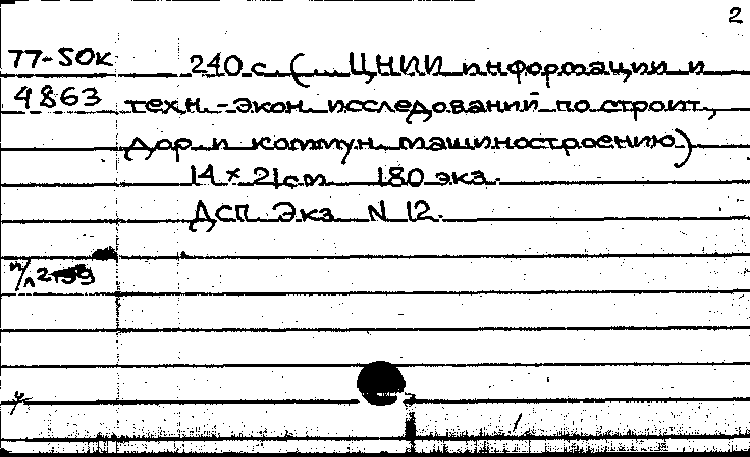 2
77-50к 240 с. (... ЦНИИ информации и
4863 техн.-экон. исследований по строит.,
дор. и коммун. машиностроению)
14 × 21см 180 экз.
ДСП Экз. N 12.